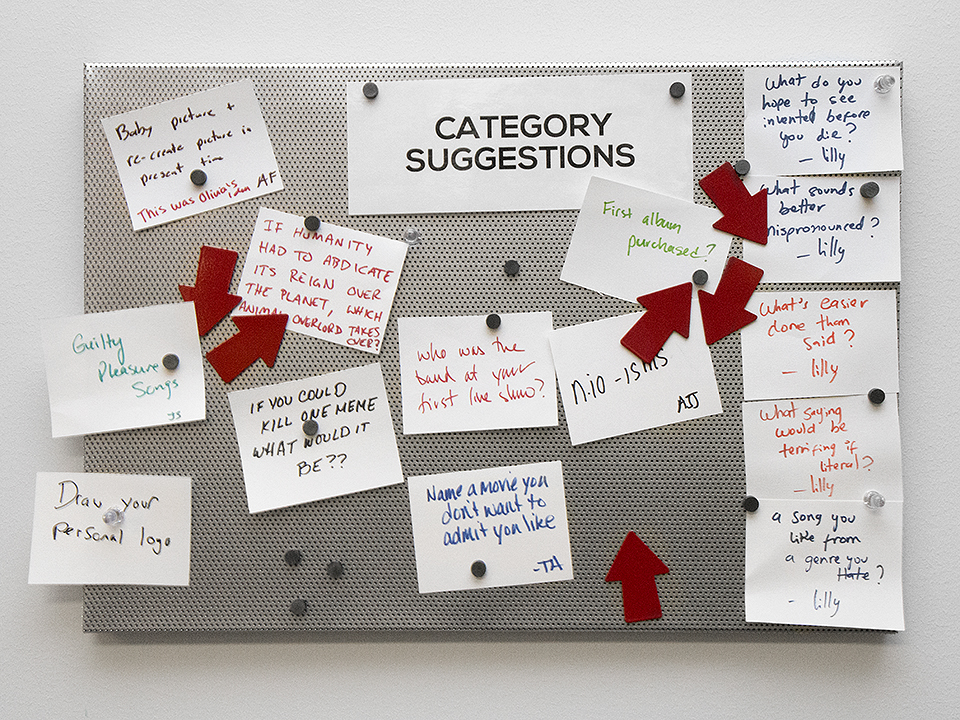 CATEGORY
SUGGESTIONS
Baby picture +
re-create picture in
present time
This was Olivia's
idea AF
IF HUMANITY
HAD TO ABDICATE
ITS REIGN OVER
THE PLANET, WHICH
ANIMAL OVERLORD TAKES
OVER?
Guilty
Pleasure
Songs
JS
IF YOU COULD
KILL ONE MEME
WHAT WOULD IT
BE??
Draw your
personal logo
First album
purchased?
who was the
band at your
first live show?
nio-isms
AJJ
Name a movie you
don't want to
admit you like
-TA
What do you
hope to see
invented before
you die?
- lilly
What sounds
better
mispronounced?
- lilly
What's easier
done than
said?
- lilly
What saying
would be
terrifing if
literal?
- lilly
a song you
like from
a genre you
Hate?
- lilly